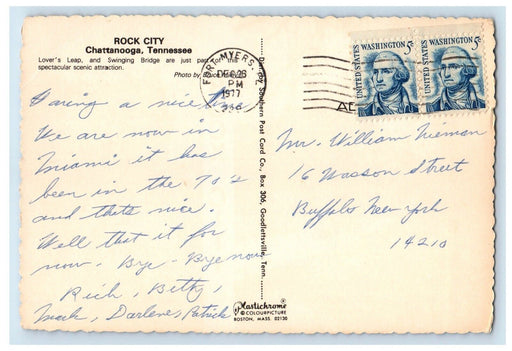 ROCK CITY
Chattanooga, Tennessee
Lover's Leap, and Swinging Bridge are just part of this
spectacular scenic attraction.
Photo by
FORT MYERS, FL
PM
1977
336
UNITED STATES
WASHINGTON 5c
UNITED STATES
WASHINGTON 5c
Having a nice time
We are now in
Miami it has
been in the 70's
and thats nice.
Well that it for
now. Bye-Bye now
Rich, Betty,
Mark, Darlene, Patrick
Dist. by Southern Post Card Co., Box 306, Goodlettsville, Tenn.
Mr. William Nieman
16 Wasson Street
Buffalo New York
14210
Plastichrome®
COLOURPICTURE
BOSTON, MASS. 02130